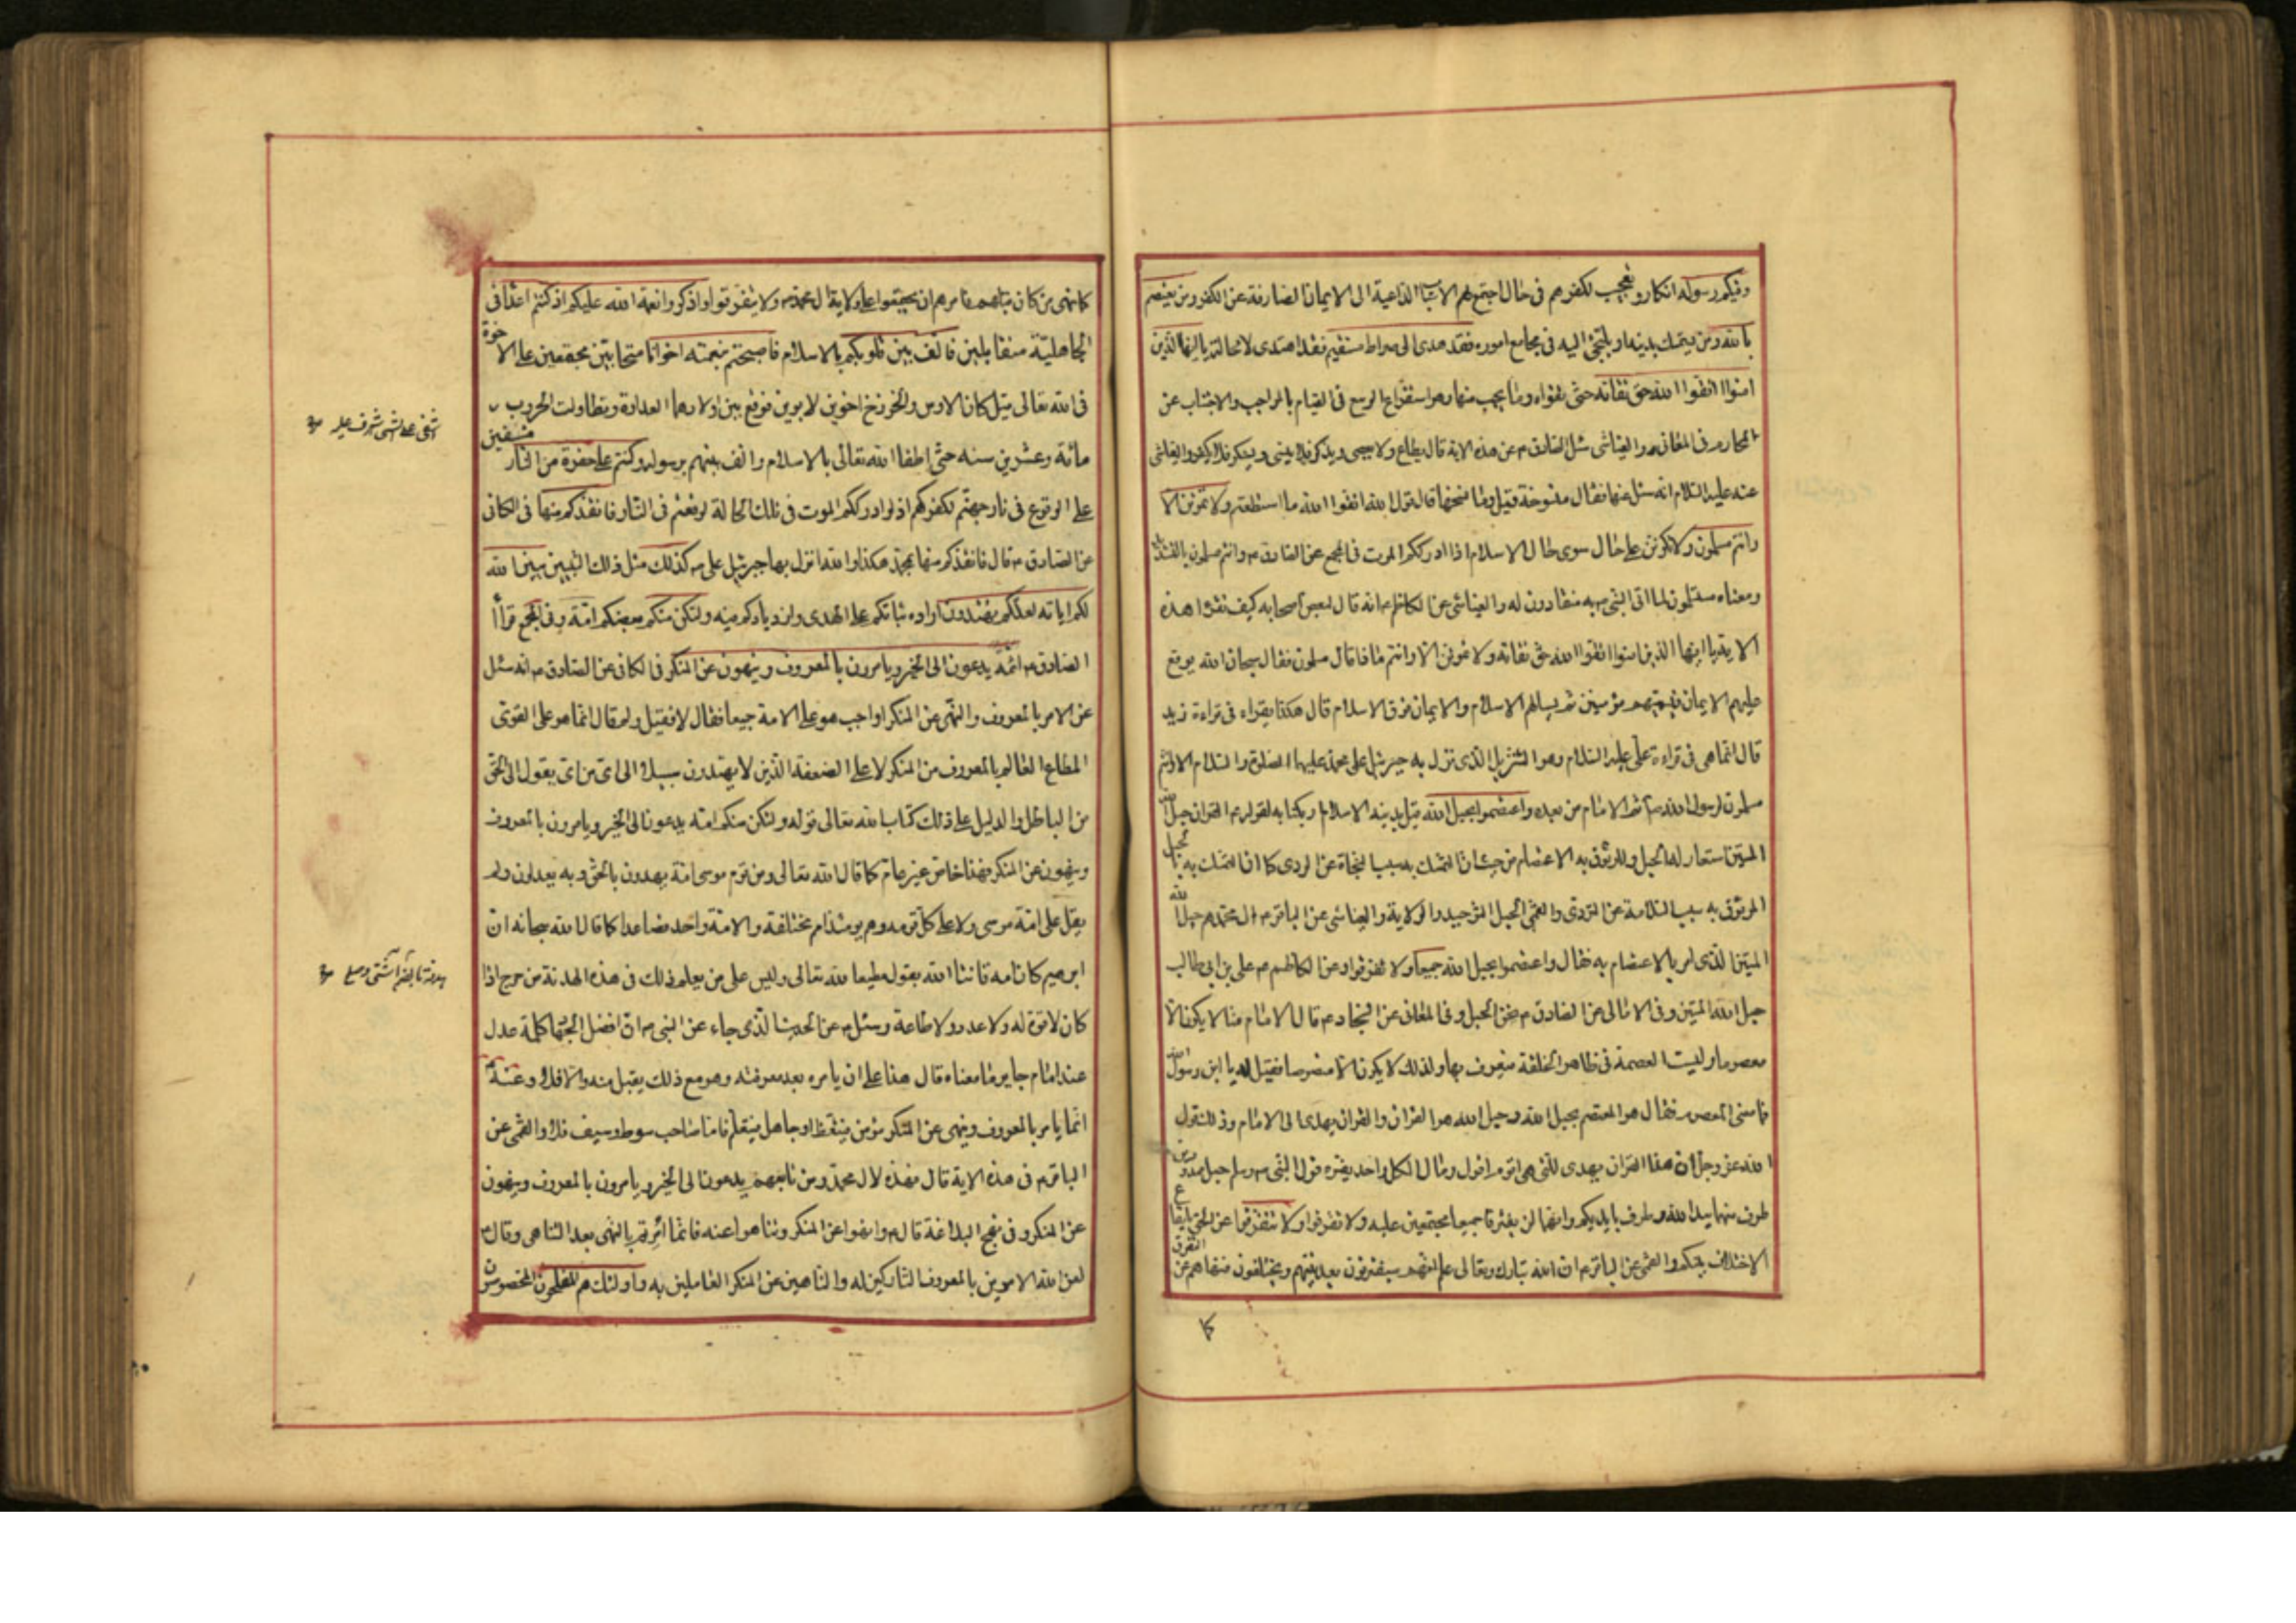 وفيكم رسوله انكار وتعجيب لكفرهم فى حال اجتمع لهم الاسباب الداعية الى الايمان الصارفة عن الكفر ومن يعتصم
بالله ومن يتمسك بدينه او يلتجئ اليه فى مجامع اموره فقد هدى الى صراط مستقيم فقد اهتدى لا محالة يا ايها الذين
امنوا اتقوا الله حق تقاته حق تقواه وما يجب منها وهو استفراغ الوسع فى القيام بالواجب والاجتناب عن
المحارم فى المعانى والعياشى سئل الصادق م عن هذه الاية قال يطاع ولا يعصى ويذكر فلا ينسى ويشكر فلا يكفر والعياشى
عنه عليه السلام انه سئل عنها فقال منسوخة قيل وما نسخها قال قول الله اتقوا الله ما استطعتم ولا تموتن الا
وانتم مسلمون ولا تكونن على حال سوى حال الاسلام اذا ادرككم الموت فى المجمع عن الصادق م وانتم مسلمون بالتشديد
ومعناه مستسلمون لما اتى النبى ص به منقادون له والعياشى عن الكاظم م انه قال لبعض اصحابه كيف تقرء هذه
الاية يا ايها الذين امنوا اتقوا الله حق تقاته ولا تموتن الا وانتم ماذا قال مسلمون فقال سبحان الله يوقع
عليهم الايمان فيسميهم مؤمنين ثم يسالهم الاسلام والايمان فوق الاسلام قال هكذا يقراء فى قراءة زيد
قال انما هى فى قراءة على عليه السلام وهو التنزيل الذى نزل به جبرئيل على محمد عليهما الصلوة والسلام الا وانتم
مسلمون لرسول الله ص ثم الامام من بعده واعتصموا بحبل الله قيل بدينه الاسلام او بكتابه لقوله م القران حبل الله
المتين استعار له الحبل وللوثوق به الاعتصام من حيث ان التمسك به سبب النجاة عن الردى كما ان التمسك بالحبل
الموثوق به سبب السلامة عن التردى والقمى الحبل التوحيد والولاية والعياشى عن الباقر م ال محمد هم حبل الله
المتين الذى امر بالاعتصام به فقال واعتصموا بحبل الله جميعا ولا تفرقوا وعن الكاظم م على بن ابى طالب
حبل الله المتين وفى الامالى عن الصادق م نحن الحبل وفى المعانى عن السجاد م قال الامام منا لا يكون الا
معصوما وليست العصمة فى ظاهر الخلقة فيعرف بها ولذلك لا يكون الا منصوصا فقيل له يا ابن رسول الله
فما معنى المعصوم فقال هو المعتصم بحبل الله وحبل الله هو القران والقران يهدى الى الامام وذلك قول
الله عز وجل ان هذا القران يهدى للتى هى اقوم اقول ومال الكل واحد يفسره قول النبى ص حبلين ممدودين
طرف منهما بيد الله وطرف بايديكم وانهما لن يفترقا جميعا مجتمعين عليه ولا تفرقوا ولا تتفرقوا عن الحق بايقاع
الاختلاف بينكم والقمى عن الباقر م ان الله تبارك وتعالى علم انهم سيفترقون بعد نبيهم ويختلفون فنهاهم عن التفرق
كا
كما نهى من كان قبلهم فامرهم ان يجتمعوا على ولاية ال محمد م ولا يتفرقوا واذكروا نعمة الله عليكم اذ كنتم اعداء فى
الجاهلية متقابلين فالف بين قلوبكم بالاسلام فاصبحتم بنعمته اخوانا متحابين مجتمعين على الاخوة
فى الله تعالى قيل كان الاوس والخزرج اخوين لابوين فوقع بين اولادهما العداوة وتطاولت الحروب
مائة وعشرين سنه حتى اطفا الله تعالى بالاسلام والف بينهم برسوله وكنتم على حفرة من النار مشفين
على الوقوع فى نار جهنم لكفركم اذ لو ادرككم الموت فى تلك الحالة لوقعتم فى النار فانقذكم منها فى الكافى
عن الصادق م قال فانقذكم منها بمحمد هكذا والله انزل بها جبرئيل على م كذلك مثل ذلك التبيين يبين الله
لكم اياته لعلكم تهتدون ارادة ثباتكم على الهدى وازديادكم فيه ولتكن منكم بعضكم امة وفى المجمع قرا
الصادق م ائمة يدعون الى الخير ويامرون بالمعروف وينهون عن المنكر فى الكافى عن الصادق م انه سئل
عن الامر بالمعروف والنهى عن المنكر اواجب هو على الامة جميعا فقال لا فقيل ولم قال انما هو على القوى
المطاع العالم بالمعروف من المنكر لا على الضعفة الذين لا يهتدون سبيلا الى اى من اى يقول الى الحق
من الباطل والدليل على ذلك كتاب الله تعالى قوله ولتكن منكم امة يدعون الى الخير ويامرون بالمعروف
وينهون عن المنكر فهذا خاص غير عام كما قال الله تعالى ومن قوم موسى امة يهدون بالحق وبه يعدلون ولم
يقل على امة موسى ولا على كل قومه وهم يومئذ امم مختلفة والامة واحد فصاعدا كما قال الله سبحانه ان
ابرهيم كان امة قانتا الله يقول مطيعا لله تعالى وليس على من يعلم ذلك فى هذه الهدنة من حرج اذا
كان لا قوة له ولا عدد ولا طاعة وسئل م عن الحديث الذى جاء عن النبى م ان افضل الجهاد كلمة عدل
عند امام جاير ما معناه قال هذا على ان يامره بعد معرفته وهو مع ذلك يقبل منه والا فلا وعنه م
انما يامر بالمعروف وينهى عن المنكر مؤمن فيتعظ او جاهل فيتعلم فاما صاحب سوط وسيف فلا والقمى عن
الباقر م فى هذه الاية قال فهذه لال محمد ومن تابعهم يدعون الى الخير ويامرون بالمعروف وينهون
عن المنكر وفى نهج البلاغة قال م وانهوا عن المنكر وتناهوا عنه فانما امرتم بالنهى بعد التناهى وقال م
لعن الله الامرين بالمعروف التاركين له والناهين عن المنكر العاملين به واولئك هم المفلحون المخصوصون
اشفى على الشى شرف عليه
هدنة بالضم آشتى وصلح